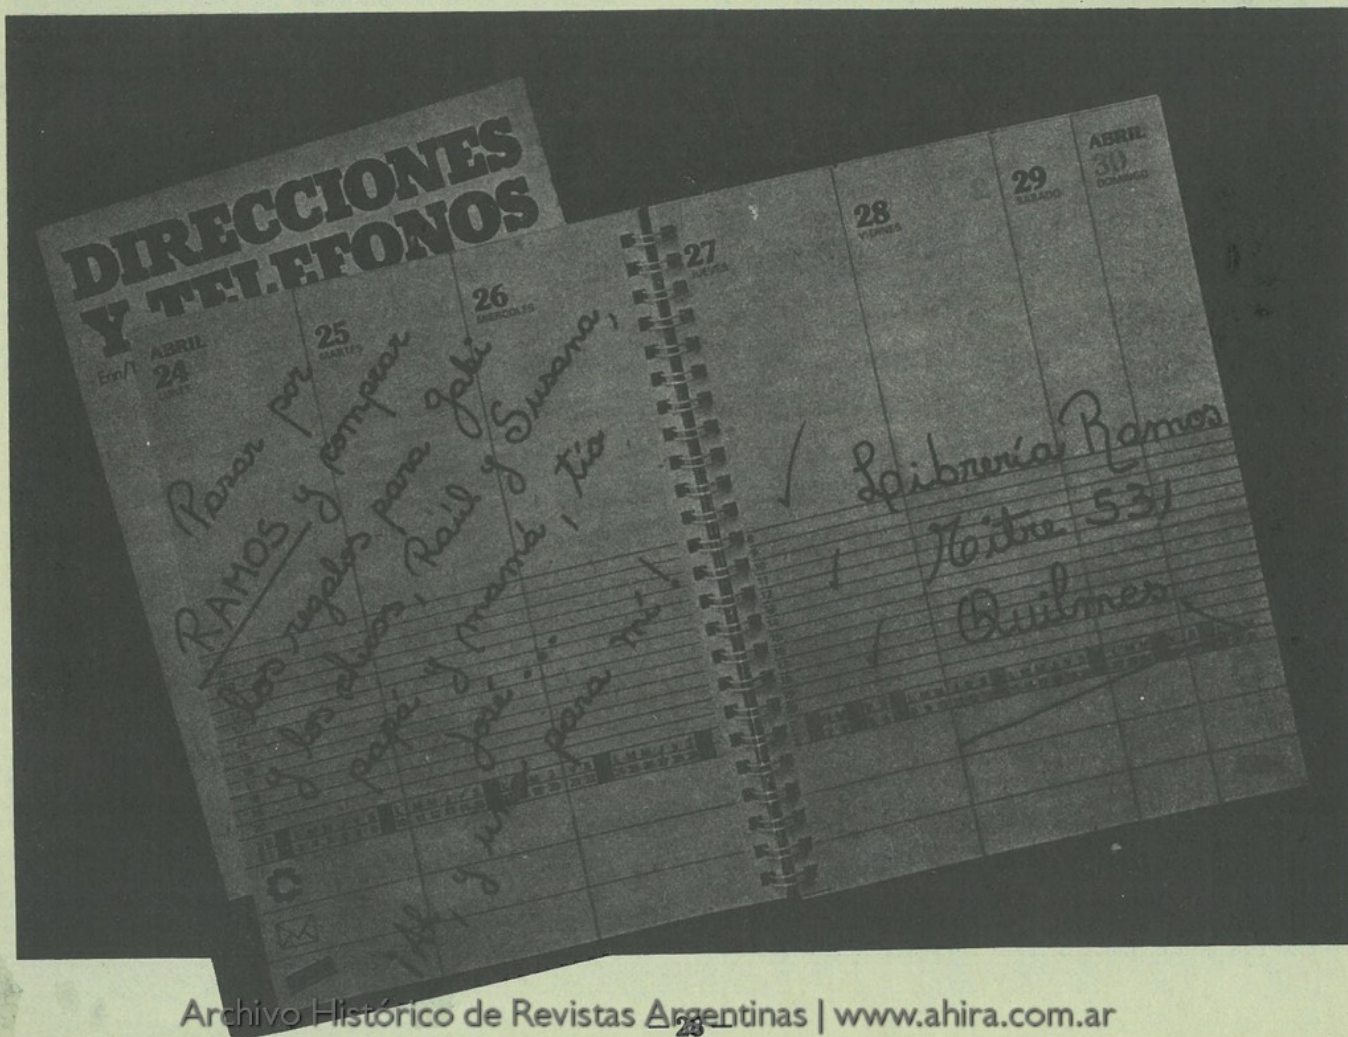 DIRECCIONES
Y TELEFONOS
ABRIL
24
LUNES
25
MARTES
26
MIERCOLES
27
JUEVES
28
VIERNES
29
SABADO
ABRIL
30
DOMINGO
Pasar por
RAMOS y comprar
los regalos para Gabi
y los chicos, Raúl y Susana,
papá y mamá, tío
José...
¡Ah, y uno para mí!
Librería Ramos
Mitre 531
Quilmes
Archivo Histórico de Revistas Argentinas | www.ahira.com.ar